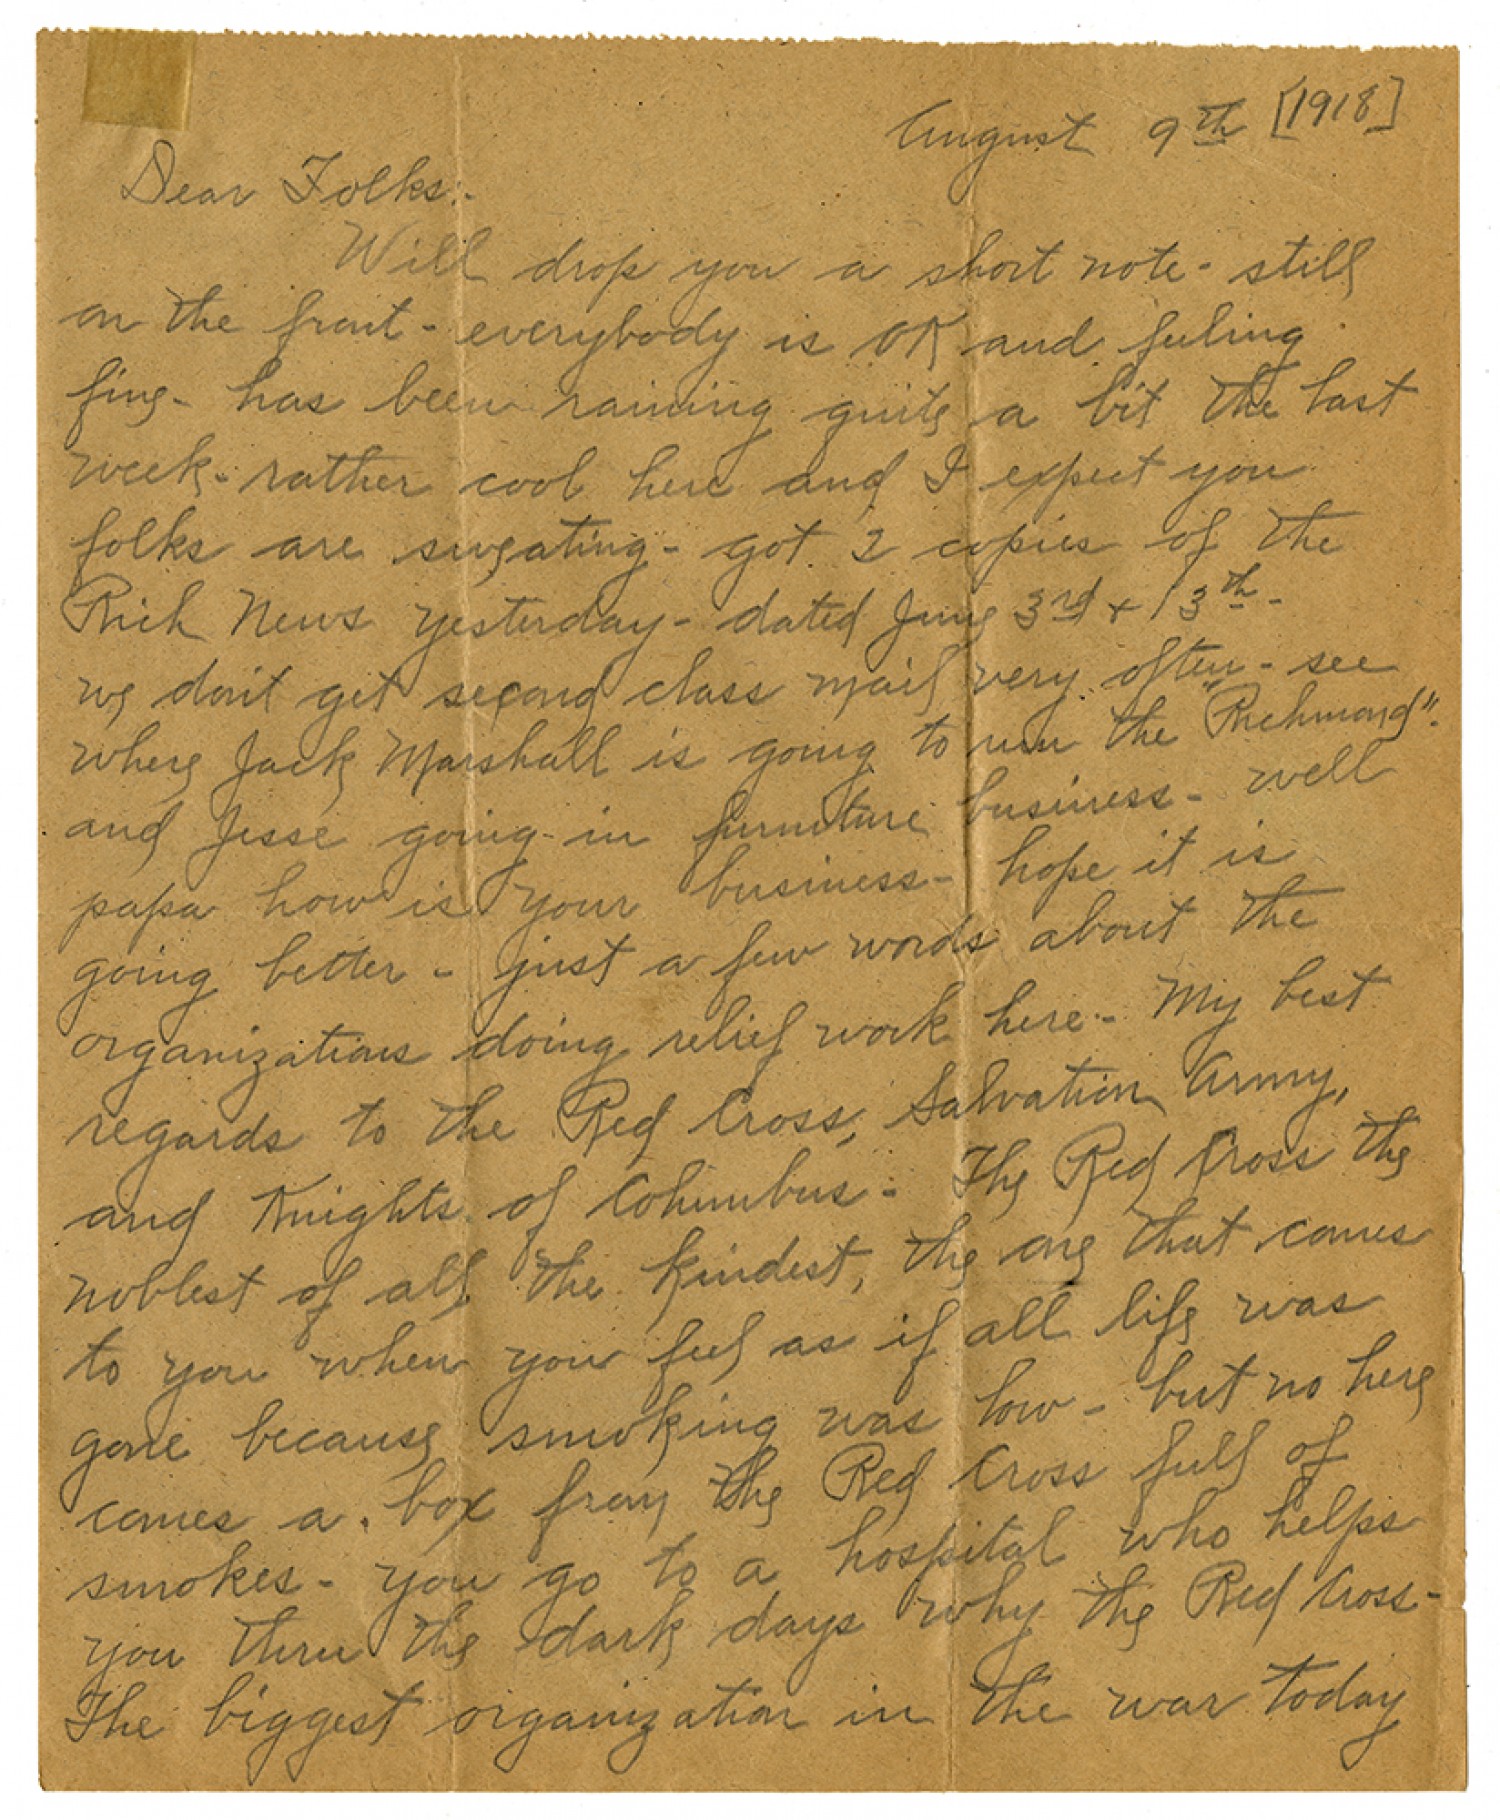 August 9th [1918]
Dear Folks:-
Will drop you a short note - still
on the front - everybody is OK and feeling
fine - has been raining quite a bit the last
week - rather cool here and I expect you
folks are sweating - got 2 copies of the
Rich News yesterday - dated June 3rd + 13th -
we don't get second class mail very often - see
where Jack Marshall is going to run the "Richmond" -
and Jesse going in furniture business - well
papa how is your business - hope it is
going better - just a few words about the
organizations doing relief work here - My best
regards to the Red Cross, Salvation Army,
and Knights of Columbus - The Red Cross the
noblest of all the kindest, the one that comes
to you when you feel as if all life was
gone because smoking was low - but no here
comes a box from the Red Cross full of
smokes - you go to a hospital who helps
you thru the dark days why the Red Cross -
The biggest organization in the war today